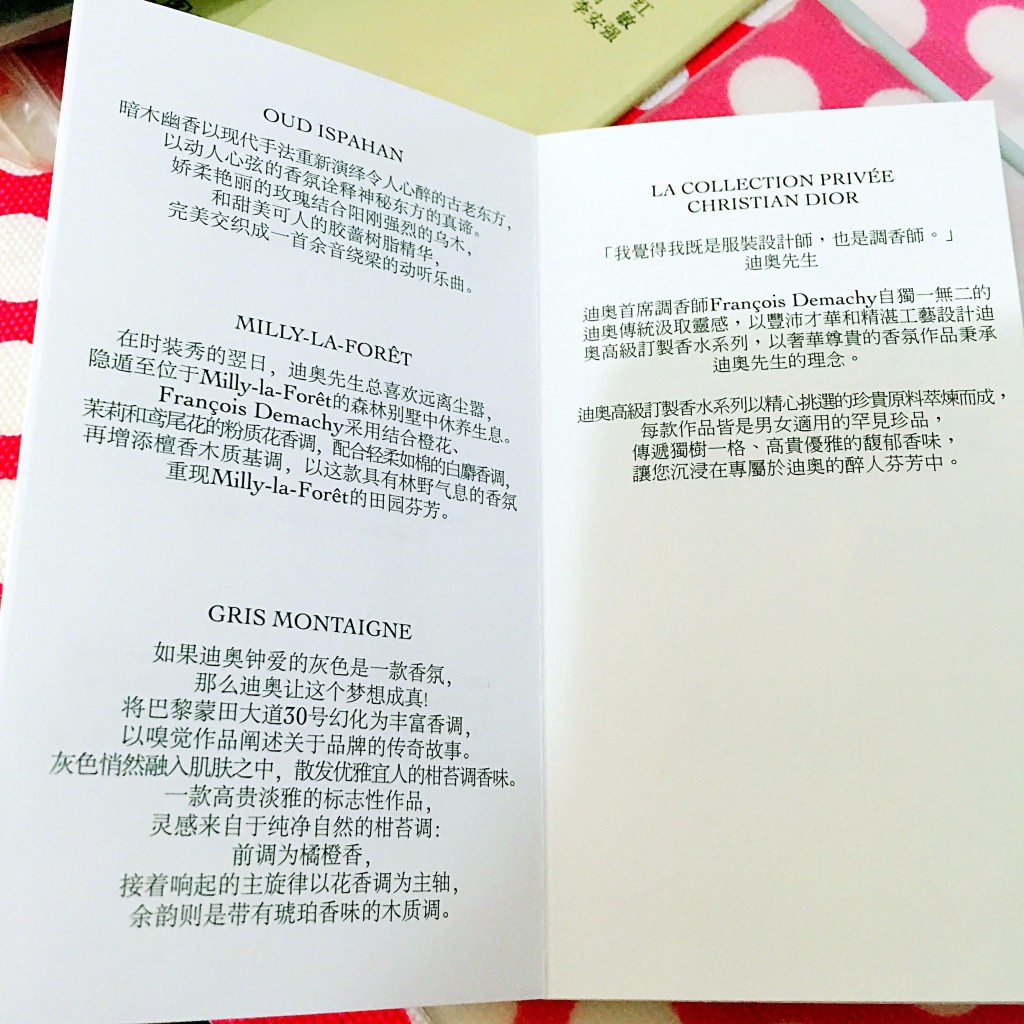 红
敏
李安强
OUD ISPAHAN
暗木幽香以现代手法重新演绎令人心醉的古老东方，
以动人心弦的香氛诠释神秘东方的真谛。
娇柔艳丽的玫瑰结合阳刚强烈的乌木，
和甜美可人的胶蔷树脂精华，
完美交织成一首余音绕梁的动听乐曲。
MILLY-LA-FORÊT
在时装秀的翌日，迪奥先生总喜欢远离尘嚣，
隐遁至位于Milly-la-Forêt的森林别墅中休养生息。
François Demachy采用结合橙花、
茉莉和鸢尾花的粉质花香调，配合轻柔如棉的白麝香调，
再增添檀香木质基调，以这款具有林野气息的香氛
重现Milly-la-Forêt的田园芬芳。
GRIS MONTAIGNE
如果迪奥钟爱的灰色是一款香氛，
那么迪奥让这个梦想成真!
将巴黎蒙田大道30号幻化为丰富香调，
以嗅觉作品阐述关于品牌的传奇故事。
灰色悄然融入肌肤之中，散发优雅宜人的柑苔调香味。
一款高贵淡雅的标志性作品，
灵感来自于纯净自然的柑苔调：
前调为橘橙香，
接着响起的主旋律以花香调为主轴，
余韵则是带有琥珀香味的木质调。
LA COLLECTION PRIVÉE
CHRISTIAN DIOR
「我覺得我既是服裝設計師，也是調香師。」
迪奥先生
迪奥首席調香師François Demachy自獨一無二的
迪奥傳統汲取靈感，以豐沛才華和精湛工藝設計迪
奥高級訂製香水系列，以奢華尊貴的香氛作品秉承
迪奥先生的理念。
迪奥高級訂製香水系列以精心挑選的珍貴原料萃煉而成，
每款作品皆是男女適用的罕見珍品，
傳遞獨樹一格、高貴優雅的馥郁香味，
讓您沉浸在專屬於迪奥的醉人芬芳中。